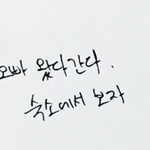 오빠 왔다간다.
숙소에서 보자